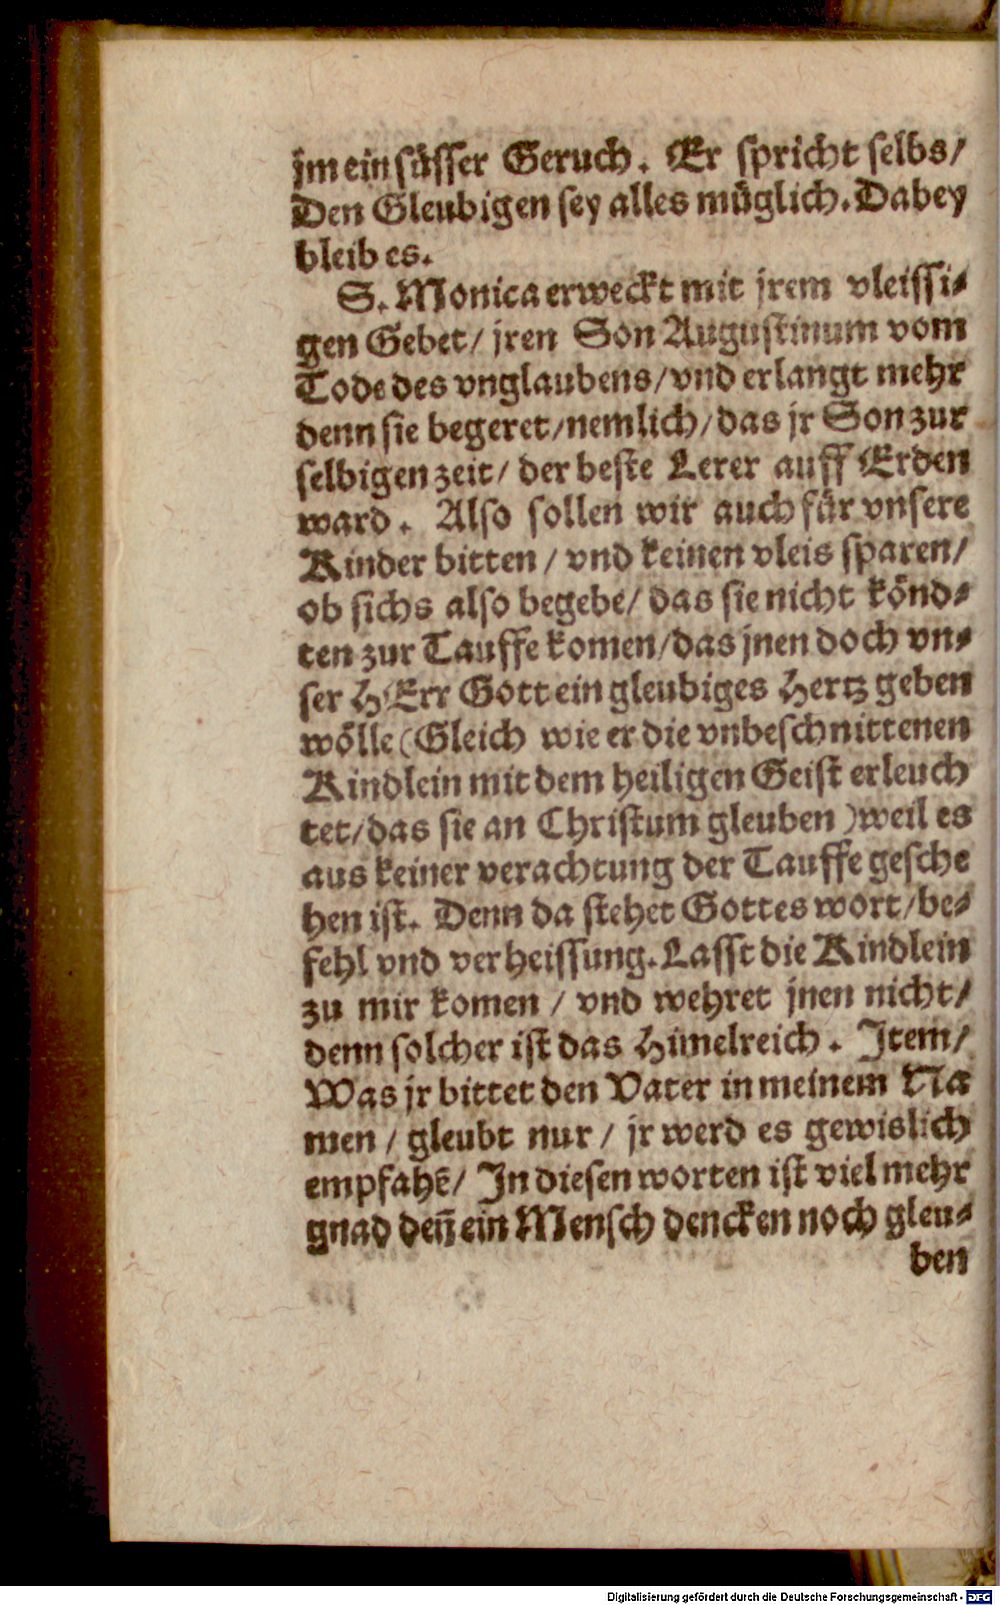 jm ein süsser Geruch. Er spricht selbs/
Den Gleubigen sey alles müglich. Dabey
bleib es.
S. Monica erweckt mit jrem vleissi-
gen Gebet/ jren Son Augustinum vom
Tode des vnglaubens/ vnd erlangt mehr
denn sie begeret/ nemlich/ das jr Son zur
selbigen zeit/ der beste Lerer auff Erden
ward. Also sollen wir auch für vnsere
Kinder bitten / vnd keinen vleis sparen/
ob sichs also begebe/ das sie nicht könd-
ten zur Tauffe komen/ das jnen doch vn-
ser HErr Gott ein gleubiges Hertz geben
wölle (Gleich wie er die vnbeschnittenen
Kindlein mit dem heiligen Geist erleuch
tet/ das sie an Christum gleuben ) weil es
aus keiner verachtung der Tauffe gesche
hen ist. Denn da stehet Gottes wort/ be-
fehl vnd verheissung. Lasst die Kindlein
zu mir komen / vnd wehret jnen nicht/
denn solcher ist das Himelreich. Item/
Was jr bittet den Vater in meinem Na
men / gleubt nur / jr werd es gewislich
empfahē/ In diesen worten ist viel mehr
gnad deñ ein Mensch dencken noch gleu-
ben
Digitalisierung gefördert durch die Deutsche Forschungsgemeinschaft - DFG